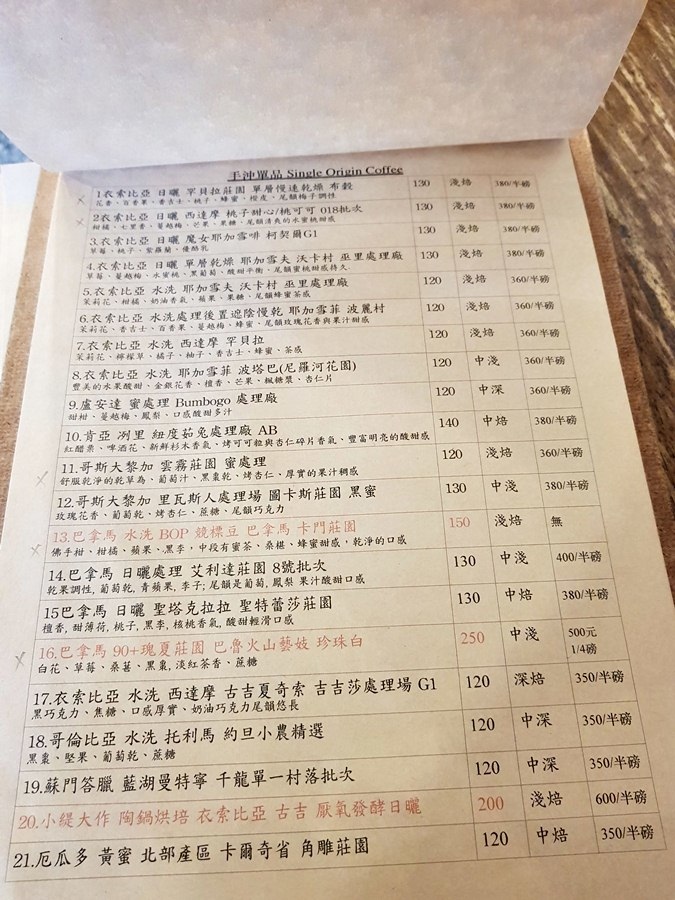 手沖單品 Single Origin Coffee
1衣索比亞 日曬 罕貝拉莊園 單層慢速乾燥 布穀 130 淺焙 380/半磅
花香、百香果、香吉士、桃子、蜂蜜、橙皮、尾韻梅子調性
2衣索比亞 日曬 西達摩 桃子甜心/桃可可 018批次 130 淺焙 380/半磅
柑橘、七里香、蔓越梅、芒果、果糖、尾韻清爽的水蜜桃甜感
3.衣索比亞 日曬 魔女耶加雪啡 柯契爾G1 130 淺焙 380/半磅
草莓、桃子、紫羅蘭、優酪乳
4.衣索比亞 日曬 單層乾燥 耶加雪夫 沃卡村 巫里處理廠 130 淺焙 380/半磅
草莓、蔓越梅、水蜜桃、黑葡萄、酸甜平衡、尾韻蜜桃甜感持久.
5.衣索比亞 水洗 耶加雪夫 沃卡村 巫里處理廠 120 淺焙 360/半磅
茉莉花、柑橘、奶油香氣、蘋果、果糖、尾韻蜂蜜茶感
6.衣索比亞 水洗處理後置遮陰慢乾 耶加雪菲 波麗村 120 淺焙 360/半磅
茉莉花、香吉士、百香果、蔓越梅、蜂蜜、尾韻玫瑰花香與果汁甜感
7.衣索比亞 水洗 西達摩 罕貝拉 120 淺焙 360/半磅
茉莉花、檸檬草、橘子、柚子、香吉士、蜂蜜、茶感
8.衣索比亞 水洗 耶加雪菲 波塔巴(尼羅河花園) 120 中淺 360/半磅
豐美的水果酸甜、金銀花香、檀香、芒果、楓糖漿、杏仁片
9.盧安達 蜜處理 Bumbogo 處理廠 120 中深 360/半磅
甜柑、蔓越梅、鳳梨、口感酸甜多汁
10.肯亞 冽里 紐度茹兔處理廠 AB 140 中焙 380/半磅
紅醋栗、啤酒花、新鮮杉木香氣、烤可可粒與杏仁碎片香氣、豐富明亮的酸甜感
11.哥斯大黎加 雲霧莊園 蜜處理 120 淺焙 360/半磅
舒服乾淨的乾草為、葡萄汁、黑棗乾、烤杏仁、厚實的果汁稠感
12.哥斯大黎加 里瓦斯人處理場 圖卡斯莊園 黑蜜 130 中淺 380/半磅
玫瑰花香、葡萄乾、烤杏仁、蔗糖、尾韻巧克力
13.巴拿馬 水洗 BOP 競標豆 巴拿馬 卡門莊園 150 淺焙 無
佛手柑、柑橘、蘋果、黑季，中段有蜜茶、桑椹、蜂蜜甜感，乾淨的口感
14.巴拿馬 日曬處理 艾利達莊園 8號批次 130 中淺 400/半磅
乾果調性, 葡萄乾, 青蘋果, 李子; 尾韻是葡萄, 鳳梨 果汁酸甜口感
15巴拿馬 日曬 聖塔克拉拉 聖特蕾莎莊園 130 中焙 380/半磅
檀香, 甜薄荷, 桃子, 黑李, 核桃香氣, 酸甜輕滑口感
16.巴拿馬 90+瑰夏莊園 巴魯火山藝妓 珍珠白 250 中淺 500元
1/4磅
白花、草莓、桑葚、黑棗, 淡紅茶香、蔗糖
17.衣索比亞 水洗 西達摩 古吉夏奇索 吉吉莎處理場 G1 120 深焙 350/半磅
黑巧克力、焦糖、口感厚實、奶油巧克力尾韻悠長
18.哥倫比亞 水洗 托利馬 約旦小農精選 120 中深 350/半磅
黑棗、堅果、葡萄乾、蔗糖
19.蘇門答臘 藍湖曼特寧 千龍單一村落批次 120 中深 350/半磅
20.小緹大作 陶鍋烘培 衣索比亞 古吉 厭氧發酵日曬 200 淺焙 600/半磅
21.厄瓜多 黃蜜 北部產區 卡爾奇省 角雕莊園 120 中焙 350/半磅